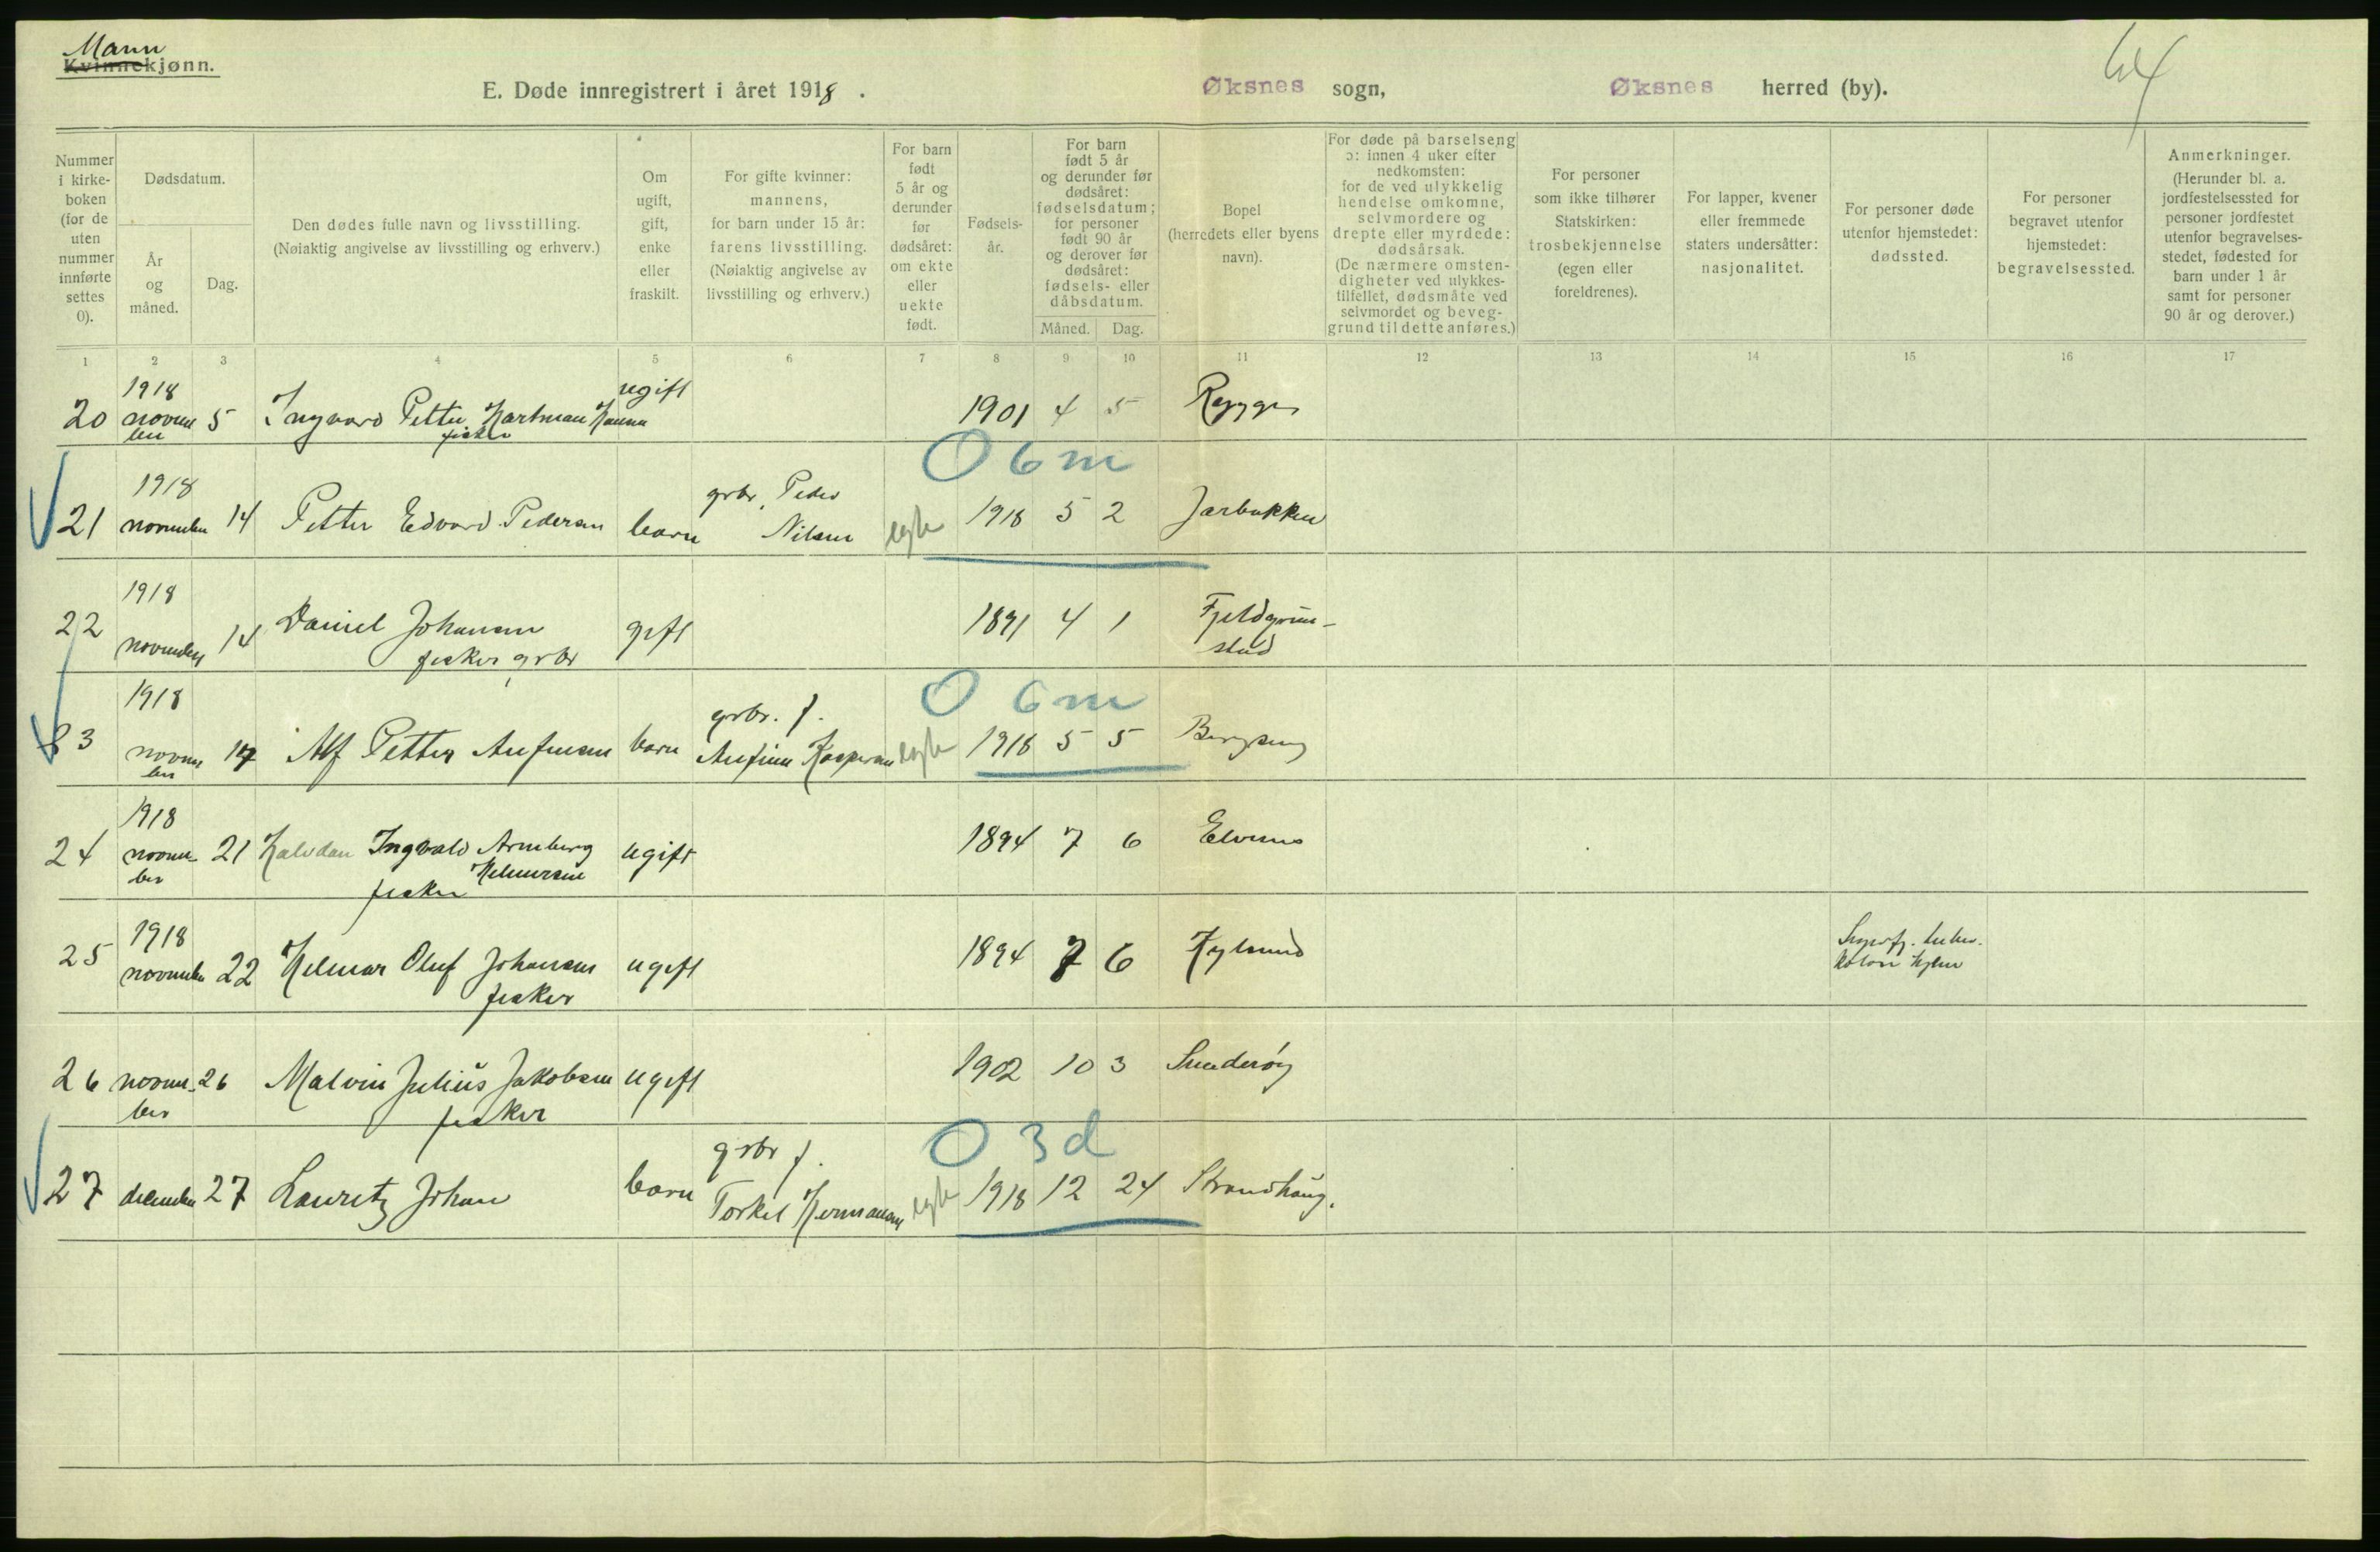 Mann
Kvinnekjønn.
64
E. Døde innregistrert i året 1918.
Øksnes sogn,
Øksnes herred (by).
Nummer i kirke-boken (for de uten nummer innførte settes 0).
Dødsdatum.
År og måned.
Dag.
Den dødes fulle navn og livsstilling.
(Nøiaktig angivelse av livsstilling og erhverv.)
Om ugift, gift, enke eller fraskilt.
For gifte kvinner: mannens, for barn under 15 år: farens livsstilling. (Nøiaktig angivelse av livsstilling og erhverv.)
For barn født 5 år og derunder før dødsåret: om ekte eller uekte født.
Fødsels-år.
For barn født 5 år og derunder før dødsåret: fødselsdatum; for personer født 90 år og derover før dødsåret: fødsels- eller dåbsdatum.
Måned. Dag.
Bopel (herredets eller byens navn).
For døde på barselseng ɔ: innen 4 uker efter nedkomsten: for de ved ulykkelig hendelse omkomne, selvmordere og drepte eller myrdede: dødsårsak. (De nærmere omsten-digheter ved ulykkes-tilfellet, dødsmåte ved selvmordet og beveg-grund til dette anføres.)
For personer som ikke tilhører Statskirken: trosbekjennelse (egen eller foreldrenes).
For lapper, kvener eller fremmede staters undersåtter: nasjonalitet.
For personer døde utenfor hjemstedet: dødssted.
For personer begravet utenfor hjemstedet: begravelsessted.
Anmerkninger. (Herunder bl. a. jordfestelsessted for personer jordfestet utenfor begravelses-stedet, fødested for barn under 1 år samt for personer 90 år og derover.)
1 2 3 4 5 6 7 8 9 10 11 12 13 14 15 16 17
1918 ugift
20 novem 5 Ingvard Petter Hartman 1901 4 5
ber fisker
0 6 m
1918 grbr. Peder
21 november 14 Petter Edvard Pedersen barn Nilsen egte 1918 5 2
1918
22 november 14 Daniel Johansen gift 1891 4 1
fisker, grbr
0 6 m
1918 grbr. f.
3 novem 14 Alf Petter barn egte 1918 5 5
ber
1918
24 novem- 21 Halvdan Ingvald Arnberg ugift 1894 7 6 Elvenes
ber Helmersen
fisker
1918
25 november 22 Helmar Oluf Johansen ugift 1894 7 6
fisker
26 novem- 26 Malvin Julius Jakobsen ugift 1902 10 3
ber fisker
0 3 d
grbr f.
27 december 27 Lauritz Johan barn Torkel Hermansen egte 1918 12 24 Strandhaug.